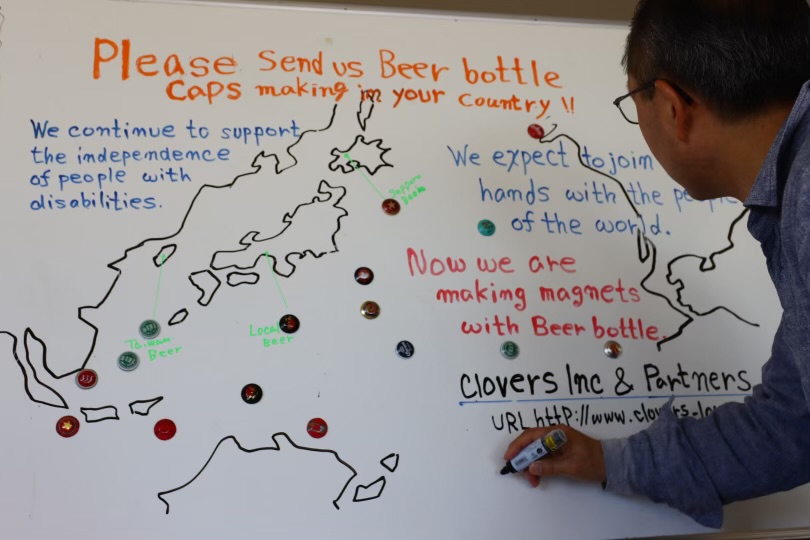 Please Send us Beer bottle
caps making in your country !!
We continue to support
the independence
of people with
disabilities.
We expect to join
hands with the
of the world.
Now we are
making magnets
with Beer bottle.
Clovers Inc & Partners
URL http://www.clovers-
Sapporo
Taiwan
Beer
Local
Beer